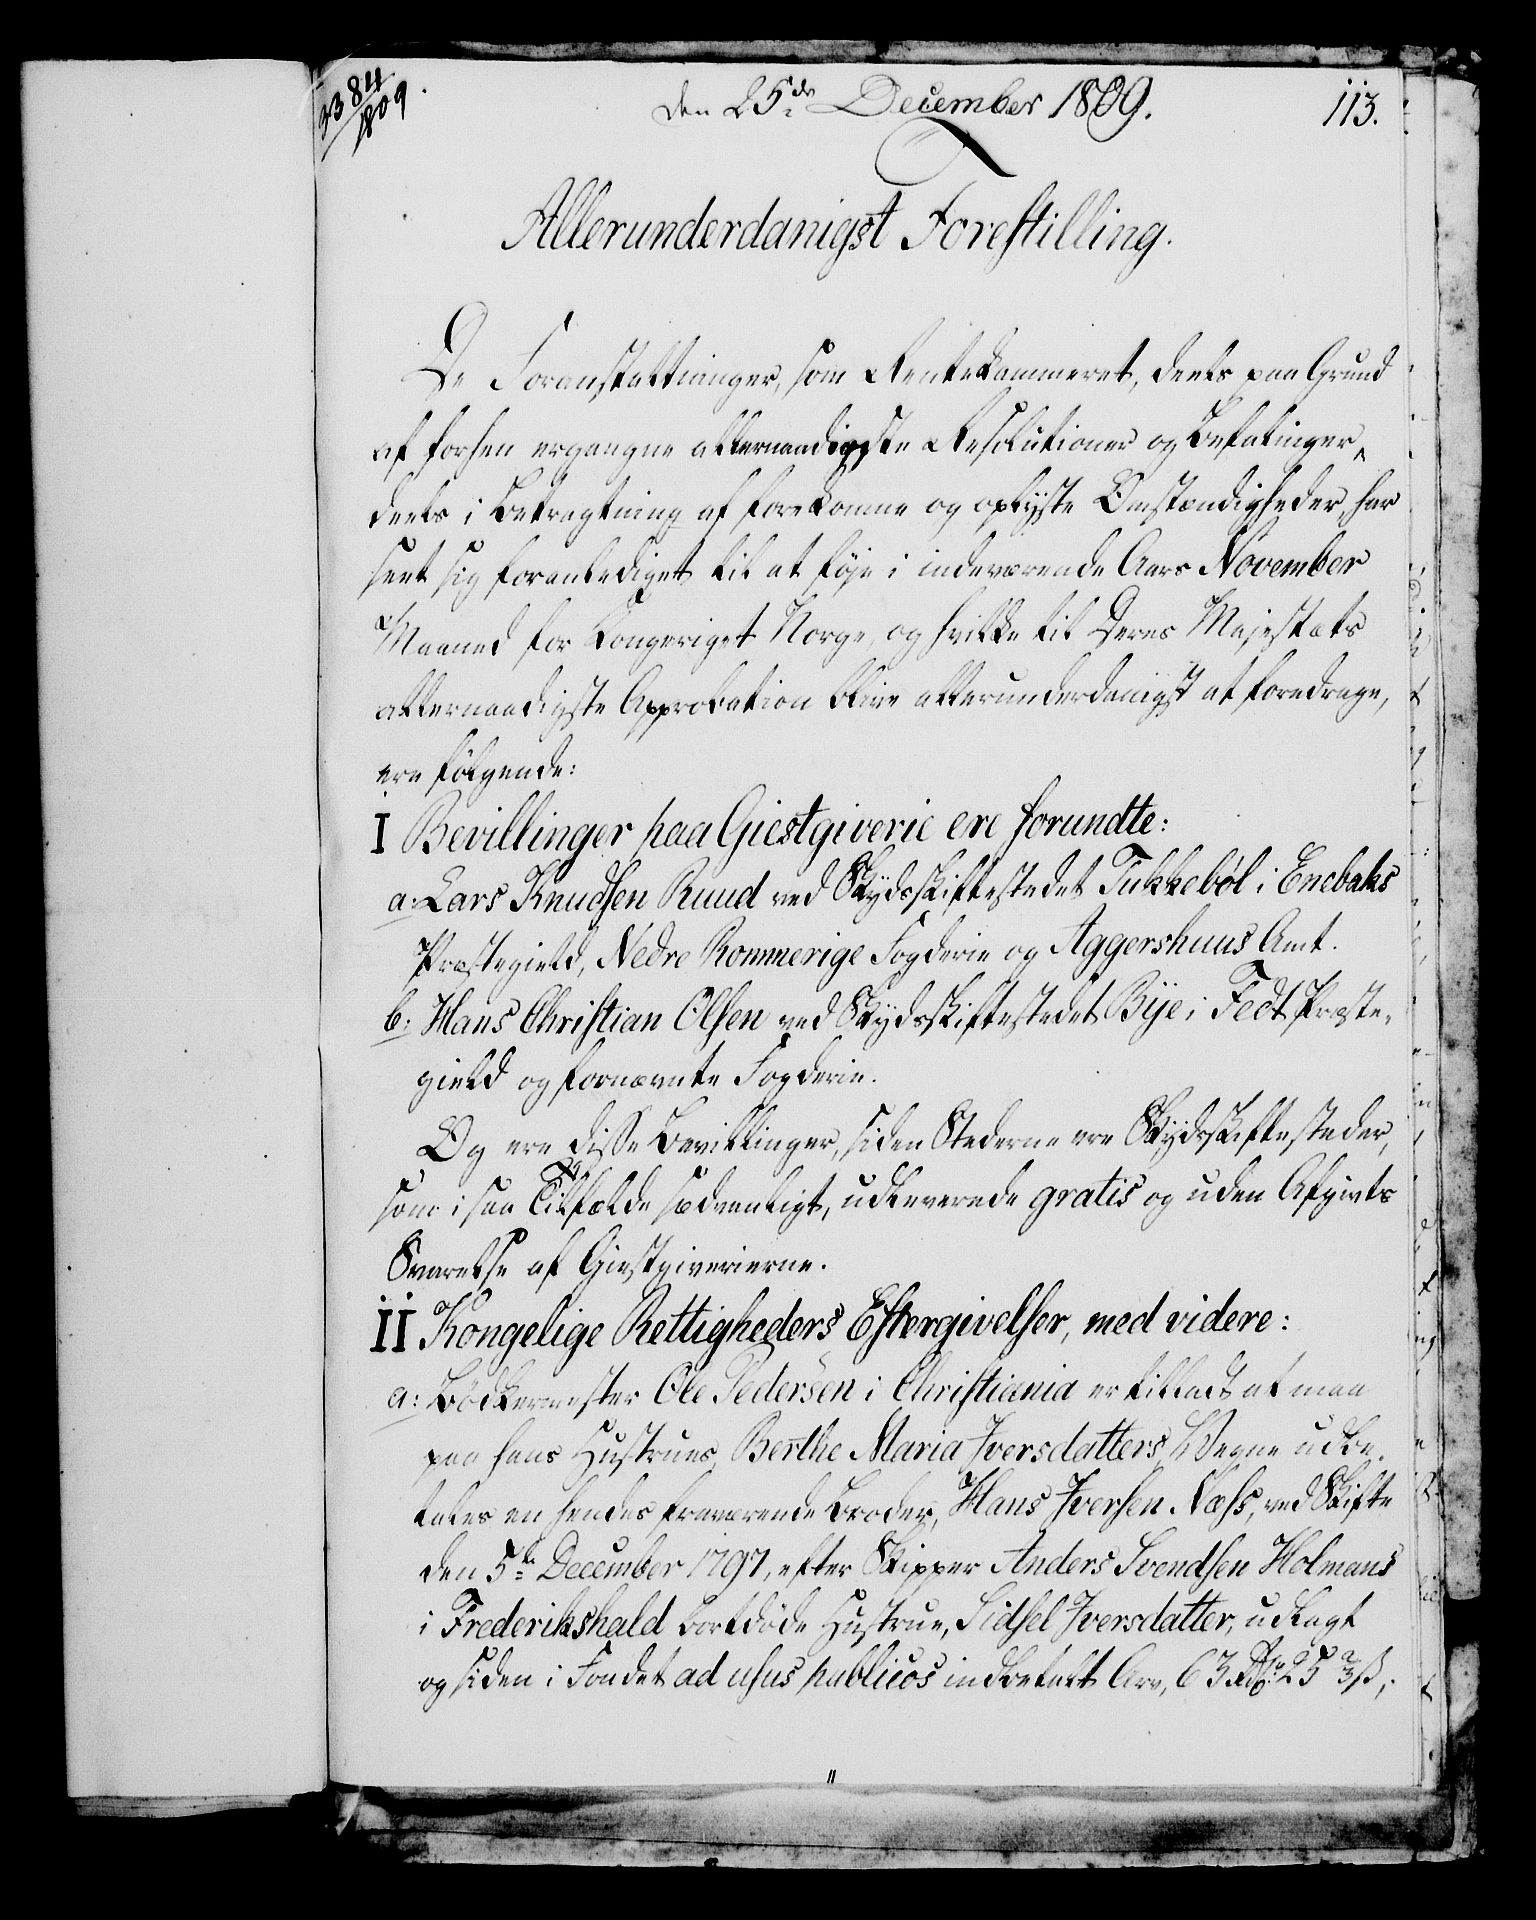 3384
1809.
den 25de December 1809.
113.
Allerunderdanigst Forestilling.
De Foranstaltninger, som Rentekammeret, deels paa Grund
af forhen ergangne allernaadigste Resolutioner og Befalinger,
deels i Betragtning af forekomne og oplyste Omstændigheder, har
seet sig foranlediget til at føje i indeværende Aars November
Maaned for Kongeriget Norge, og hvilke til Deres Majestæts
allernaadigste Approbation blive allerunderdanigst at foredrage,
ere følgende:
I Bevillinger paa Giestgiverie ere forundte:
a: Lars Knudsen Ruud ved Skydsskiftestedet Tukkebøl i Enebaks
Præstegield, Nedre Rommerige Fogderie og Aggershuus Amt.
b: Hans Christian Olsen ved Skydsskiftestedet Bije i Fedt Præste-
gield og fornævnte Fogderie.
Og ere disse Bevillinger, siden Stederne ere Skydsskiftesteder,
som i saa Tilfælde sædvanligt, udleverede gratis og uden Afgivts
Svarelse af Giestgiverierne.
II Kongelige Rettigheders Eftergivelser, med videre:
a: Bødkermester Ole Pedersen i Christiania er tilladt at maa
paa hans Hustrues, Berthe Maria Iversdatters Vegne udbe-
tales en hendes fraværende Broder, Hans Iversen Næss, ved Skifte
den 5te December 1797, efter Skipper Anders Svendsen Holmans
i Frederikshald bortdøde Hustrue, Sidsel Iversdatter, udlagt
og siden i Fondet ad usus publicos indbetalt Arv, 63 Rdlr 25 2/3 ß;